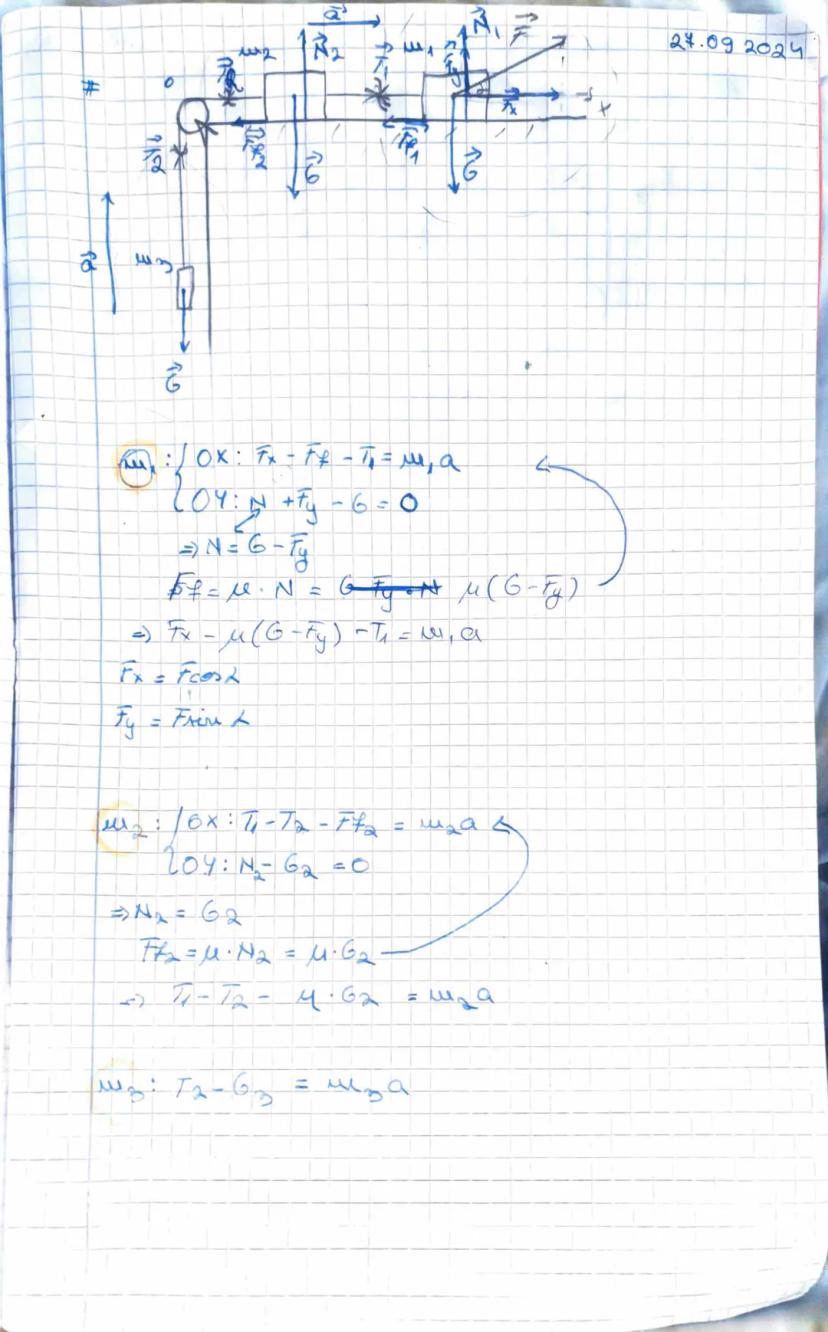 27.09 2024
a⃗
m₂ N⃗₂ T⃗₁ m₁ F⃗y N⃗₁ F⃗
# 0 T⃗₂
F⃗x x
T⃗₂ F⃗f₂ G⃗ F⃗f₁ G⃗
a⃗ m₃
G⃗
m₁ : { OX : Fx - Ff - T₁ = m₁a
OY : N + Fy - G = 0
⇒ N = G - Fy
Ff = μ · N = G - Fy · N μ(G - Fy)
⇒ Fx - μ(G - Fy) - T₁ = m₁a
Fx = Fcosα
Fy = Fsinα
m₂ : { OX : T₁ - T₂ - Ff₂ = m₂a
OY : N₂ - G₂ = 0
⇒ N₂ = G₂
Ff₂ = μ · N₂ = μ · G₂
⇒ T₁ - T₂ - μ · G₂ = m₂a
m₃ : T₂ - G₃ = m₃a